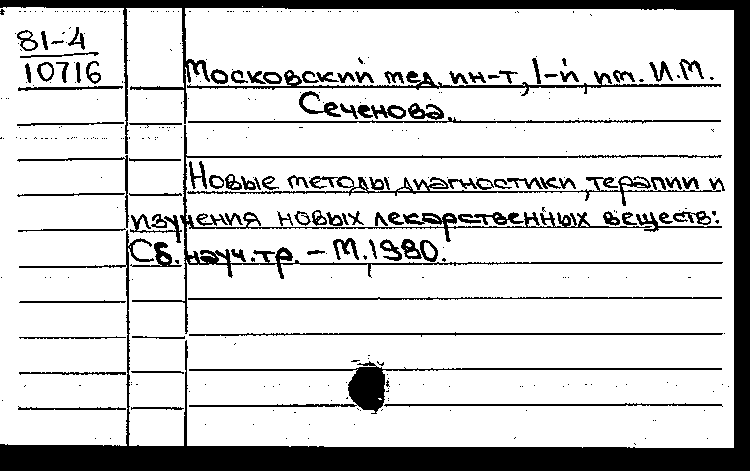 81-4
10716
Московский мед. ин-т, 1-й, им. И.М.
Сеченова.
Новые методы диагностики, терапии и
изучения новых лекарственных веществ:
Сб. науч. тр. - М., 1980.